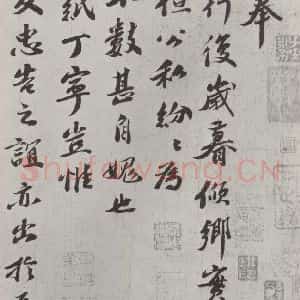 奉
行後歲暮傾鄉實
但公私紛紛為
數甚自媿也
紙丁寧豈惟
忠告之誼亦出於
Shufawang.CN